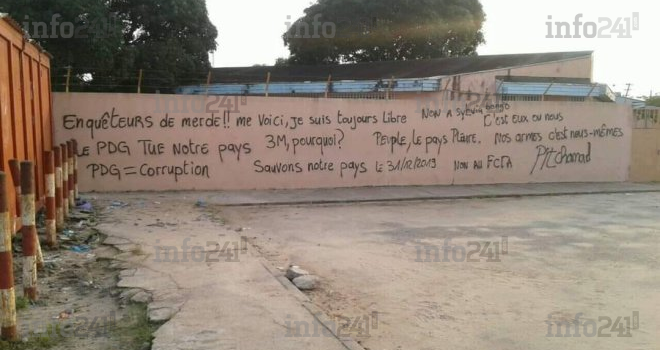 Enquêteurs de merde!! me voici, je suis toujours Libre Non à Sylvia BONGO
C'est eux ou nous
Le PDG Tue Notre pays 3M, pourquoi? Peuple, le pays Pleure. Nos armes c'est nous-mêmes
PDG = Corruption Sauvons notre pays le 31/12/2019 Non au FCFA
info241
info241
info241
info241
info241
info241
info241
info241
info241
info241
info241
info241